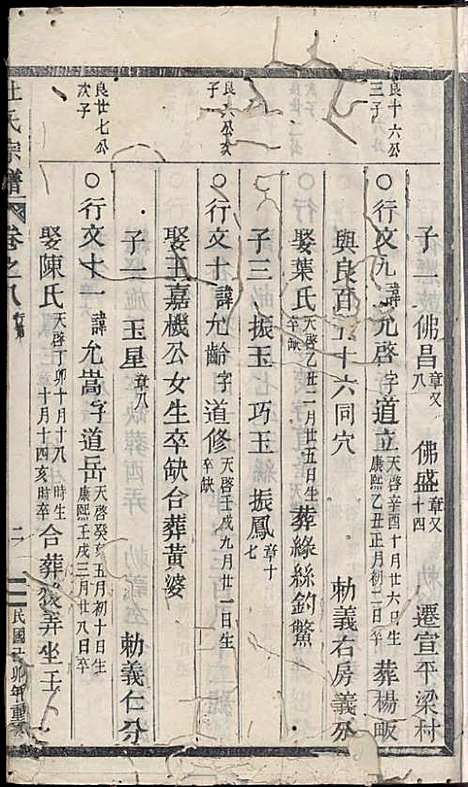 良十六公
三子
子一 佛昌章又八 佛盛章又十四 遷宣平梁村
○行文九諱允啓字道立天啓辛酉十月廿六日生康熙乙丑正月初二日卒葬楊畈
與良百五十六同穴 勅義右房義分
娶葉氏天啓乙丑二月廿五日生卒缺葬綠絲釣鱉
子三 振玉七 巧玉 振鳳章十七
良 六公次
子
○行文十諱允齡字道修天啓壬戌九月廿一日生卒缺
娶王嘉機公女生卒缺合葬黃婆
子一 玉星章八 勅義仁分
良廿七公
次子
○行文十一諱允嵩字道岳天啓癸亥五月初十日生康熙壬戌三月廿八日卒
娶陳氏天啓丁卯十月十八時生十月十四亥時卒合葬 弄坐壬
杜氏宗譜 卷之八 行第 二 民國 卯年重